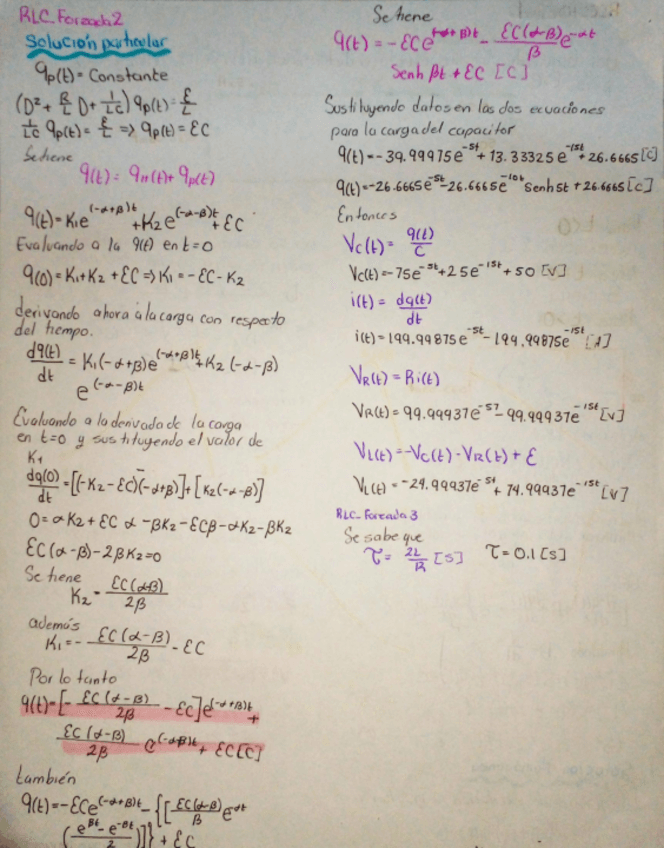 RLC_Forzada2
Solución particular
qp(t) = Constante
(D² + R/L D + 1/LC) qp(t) = ε/L
1/LC qp(t) = ε/L => qp(t) = εC
Se tiene
q(t) = qH(t) + qp(t)
q(t) = K₁e^(-α+β)t + K₂e^(-α-β)t + εC
Evaluando a la q(t) en t=0
q(0) = K₁+K₂ + εC => K₁ = -εC - K₂
derivando ahora a la carga con respecto
del tiempo.
dq(t)/dt = K₁(-α+β)e^(-α+β)t + K₂(-α-β)
e^(-α-β)t
Evaluando a la derivada de la carga
en t=0 y sustituyendo el valor de
K₁
dq(0)/dt = [(-K₂ - εC)(-α+β)] + [K₂(-α-β)]
0 = αK₂ + εC α - βK₂ - εCβ - αK₂ - βK₂
εC(α-β) - 2βK₂ = 0
Se tiene
K₂ = εC(α-β)/2β
además
K₁ = - εC(α-β)/2β - εC
Por lo tanto
q(t) = [- εC(α-β)/2β - εC]e^(-α+β)t +
εC(α-β)/2β e^(-α-β)t + εC [C]
también
q(t) = -εCe^(-α+β)t - {[εC(α-β)/β e^-αt
(e^βt - e^-βt/2)]} + εC
Se tiene
q(t) = -εCe^(-α+β)t - εC(α-β)/β e^-αt
Senh βt + εC [C]
Sustituyendo datos en las dos ecuaciones
para la carga del capacitor
q(t) = -39.99975e^-5t + 13.33325e^-15t + 26.6665 [C]
q(t) = -26.6665e^-5t - 26.6665e^-10t Senh5t + 26.6665 [C]
Entonces
Vc(t) = q(t)/C
Vc(t) = -75e^-5t + 25e^-15t + 50 [V]
i(t) = dq(t)/dt
i(t) = 199.99875e^-5t - 199.99875e^-15t [A]
VR(t) = Ri(t)
VR(t) = 99.99937e^-5t - 99.99937e^-15t [V]
VL(t) = -Vc(t) - VR(t) + ε
VL(t) = -24.99937e^-5t + 74.99937e^-15t [V]
RLC_Forzada3
Se sabe que
τ = 2L/R [S] τ = 0.1 [S]